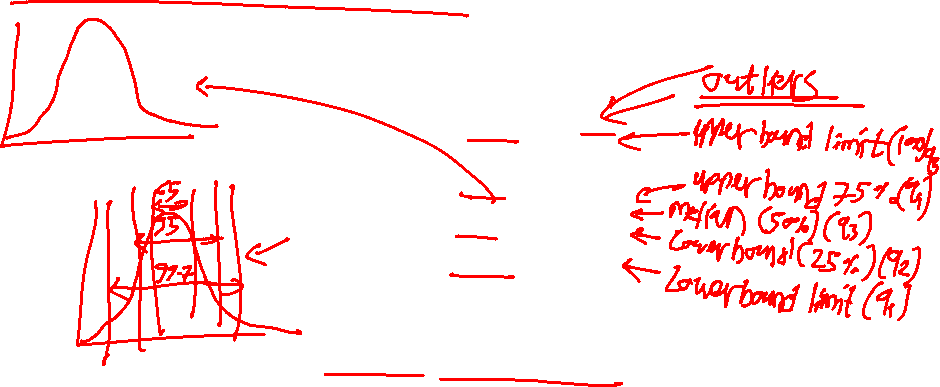 outliers
upper bound limit (100%)
upper bound 75% (q4)
median (50%) (q3)
Lower bound (25%) (q2)
Lower bound limit (q1)
65
95
99.7